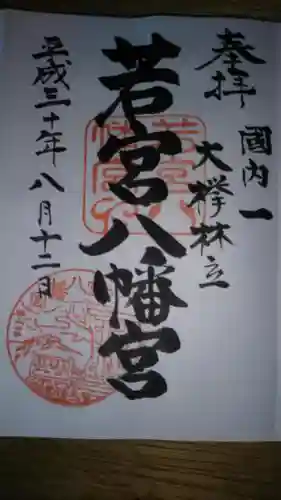 奉拝
國内一
大欅林立
若宮八幡宮
平成三十年八月十二日